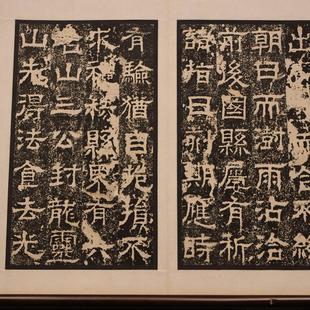 出而合不終
朝日而澍雨沾洽
前後國縣屢有祈
請指日刻期應時
有驗猶自挹損不
求禮秩縣界有六
名山三公封龍靈
山先得法食去光